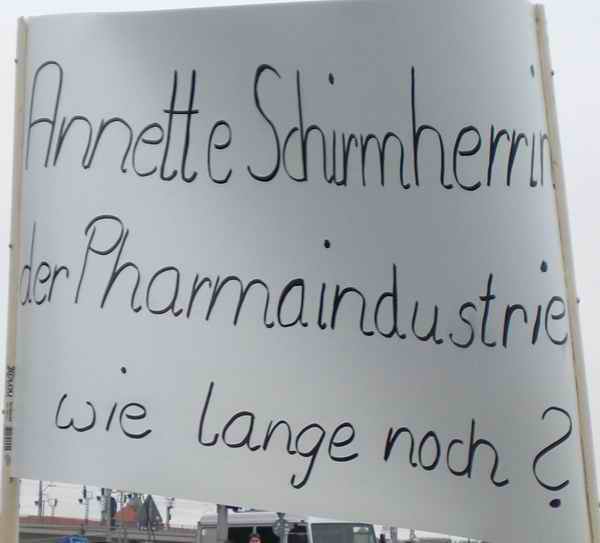 Annette Schirmherrin
der Pharmaindustrie
wie lange noch?